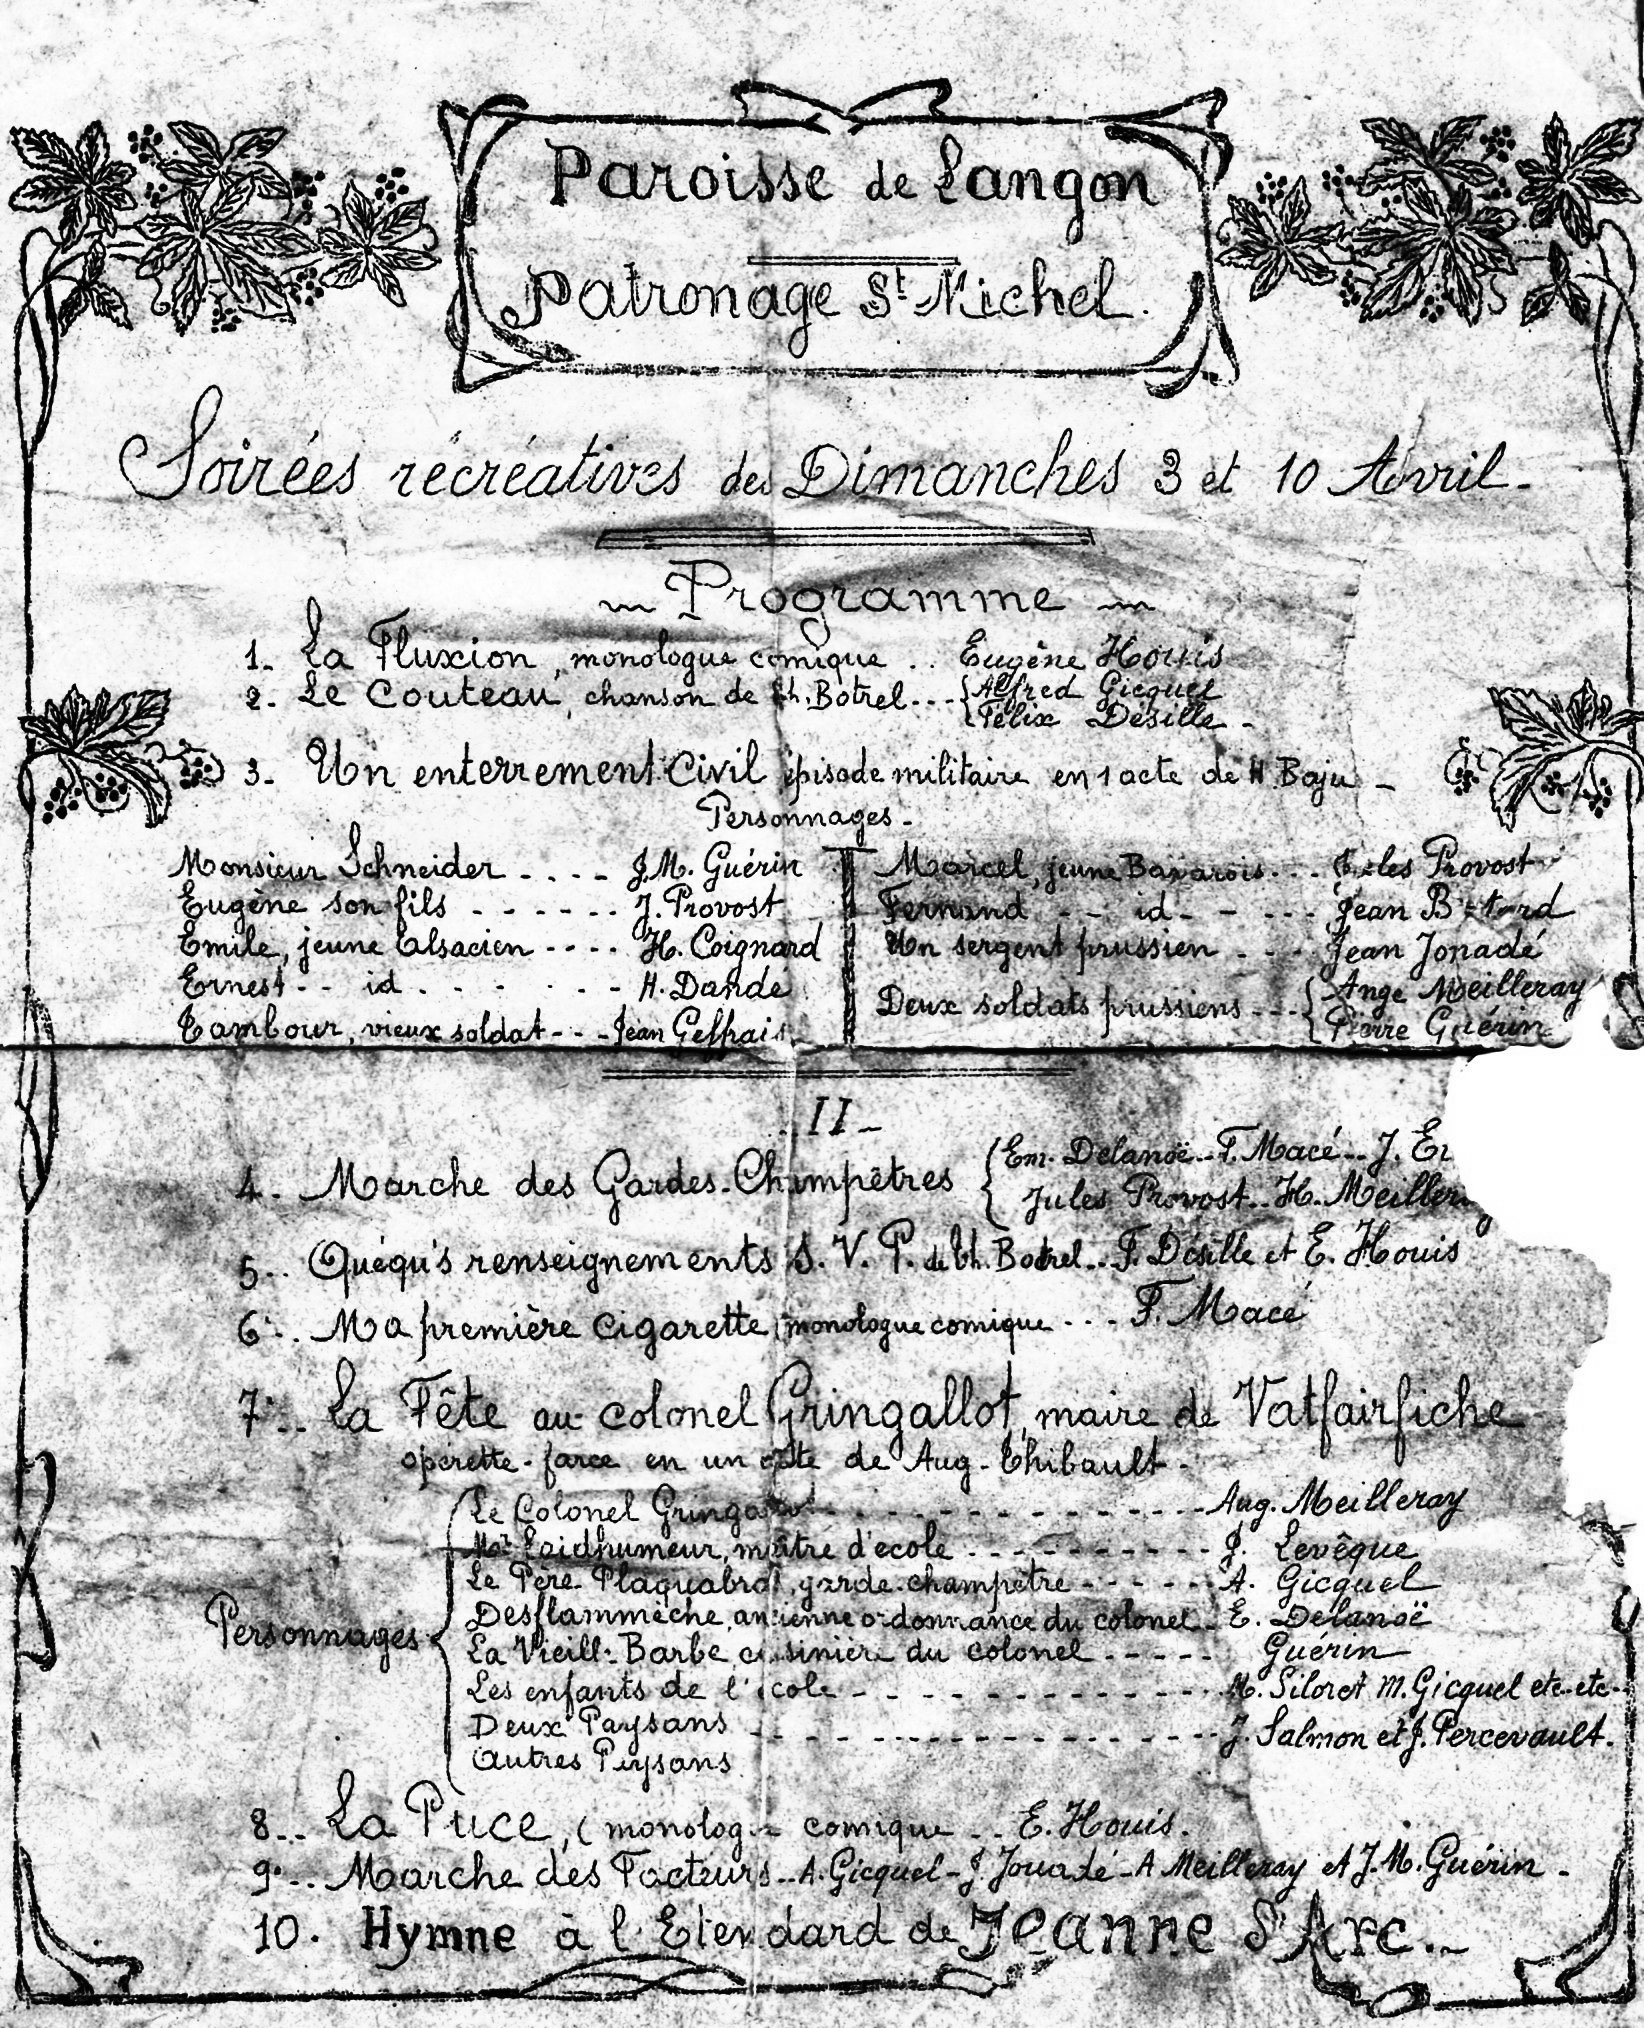 Paroisse de Langon
Patronage St Michel.
Soirées récréatives des Dimanches 3 et 10 Avril.
Programme
1. La Fluxion, monologue comique .. Eugène Houis
2. Le Couteau, chanson de Th. Botrel... { Alfred Gicquel
Félix Désille -
3. Un enterrement Civil épisode militaire en 1 acte de H. Baju -
Personnages.
Monsieur Schneider .... J.M. Guérin
Eugène son fils ...... J. Provost
Emile, jeune Alsacien .... H. Coignard
Ernest -- id ...... H. Dandé
Tambour, vieux soldat --- Jean Geffrai
Marcel, jeune Bavarois ... Jules Provost
Fernand -- id -- ... Jean
Un sergent prussien .... Jean Jonadé
Deux soldats prussiens ... { Ange Meilleray
Pierre Guérin
II
4. Marche des Gardes-Champêtres { Em. Delanoë.. F. Macé.. J.
Jules Provost.. H. Meilleray
5.. Quéqu's renseignements S.V.P. de Th. Botrel.. F. Désille et E. Houis
6.. Ma première cigarette (monologue comique ... F. Macé
7.. La Fête au colonel Gringallot, maire de Vatfairfiche
opérette-farce en un acte de Aug. Thibault.
Personnages {
Le Colonel Gringallot .............. Aug. Meilleray
Mr Laidhumeur, maître d'école .......... J. Levêque
Le Père Plaquabrot, garde-champêtre ...... A. Gicquel
Desflammèche, ancienne ordonnance du colonel. E. Delanoë
La Vieille Barbe, cuisinière du colonel ..... Guérin
Les enfants de l'école .............. M. Siloret M. Gicquel etc-etc..
Deux Paysans .............. J. Salmon et J. Percevault.
Autres Paysans
8... La Puce, ( monologue comique ... E. Houis.
9... Marche des Facteurs.. A. Gicquel - J. Jouadé - A Meilleray et J.M. Guérin -
10. Hymne à l'Etendard de Jeanne d'Arc.-